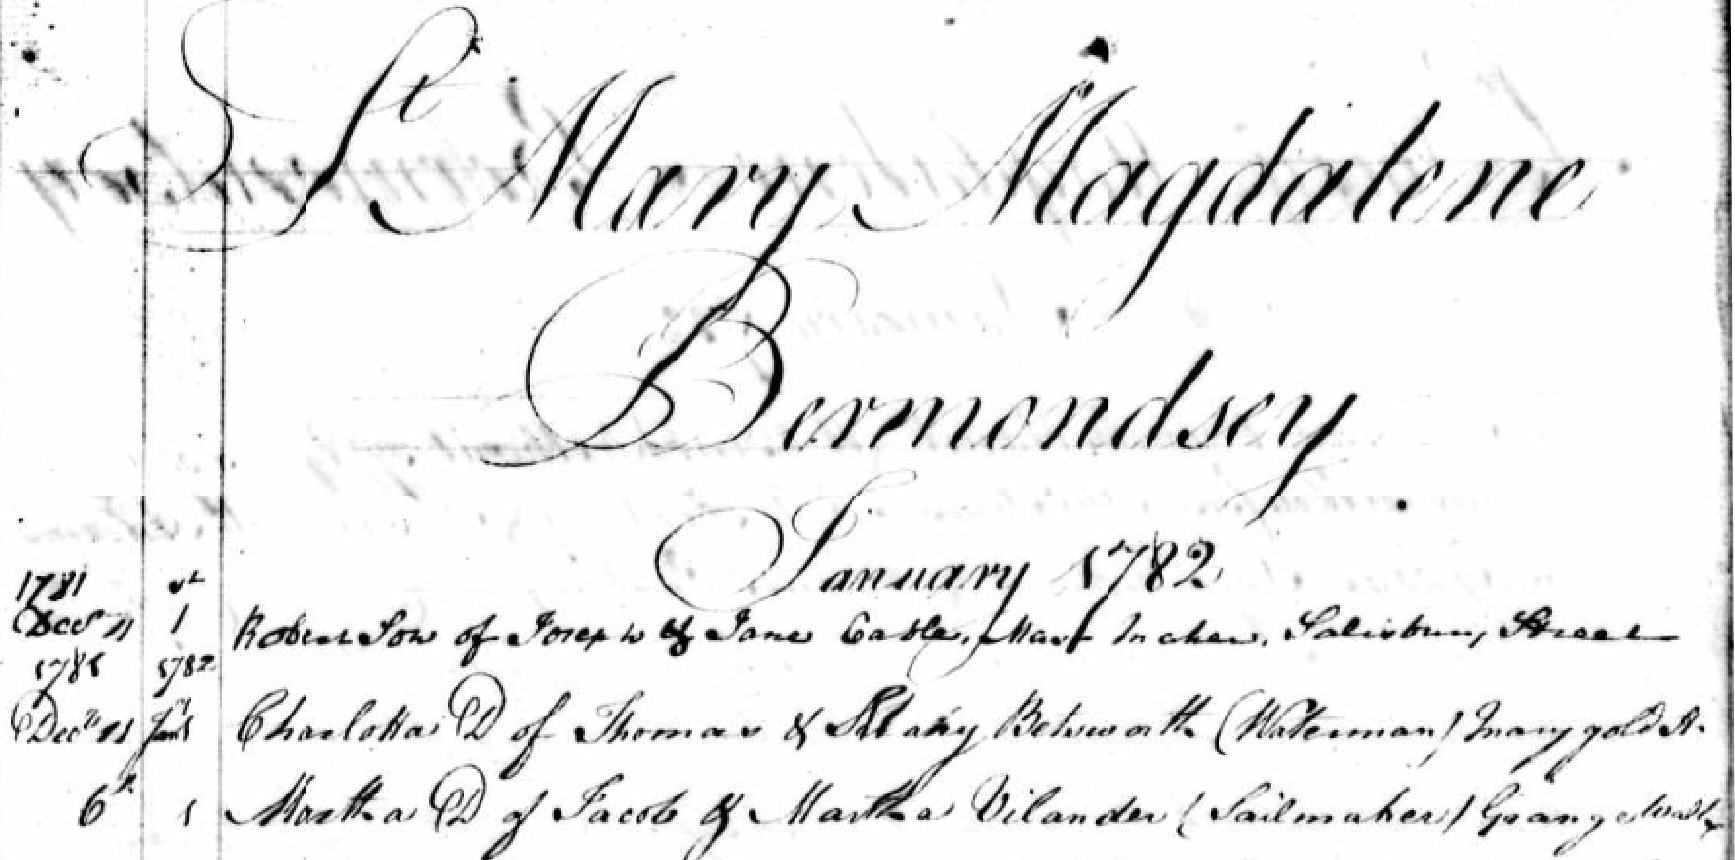 St Mary Magdalene
Bermondsey
January 1782
1781 st
Decr 11 1 Robert Son of Joseph & Jane Castle, Salisbury Street
1781 1782
Decr 11 Jany 1 Charlotta D of Thomas & Mary Betsworth (Waterman) Marygold St.
6th 1 Martha D of Jacob & Martha Vilander (Sailmaker) Grange Walk